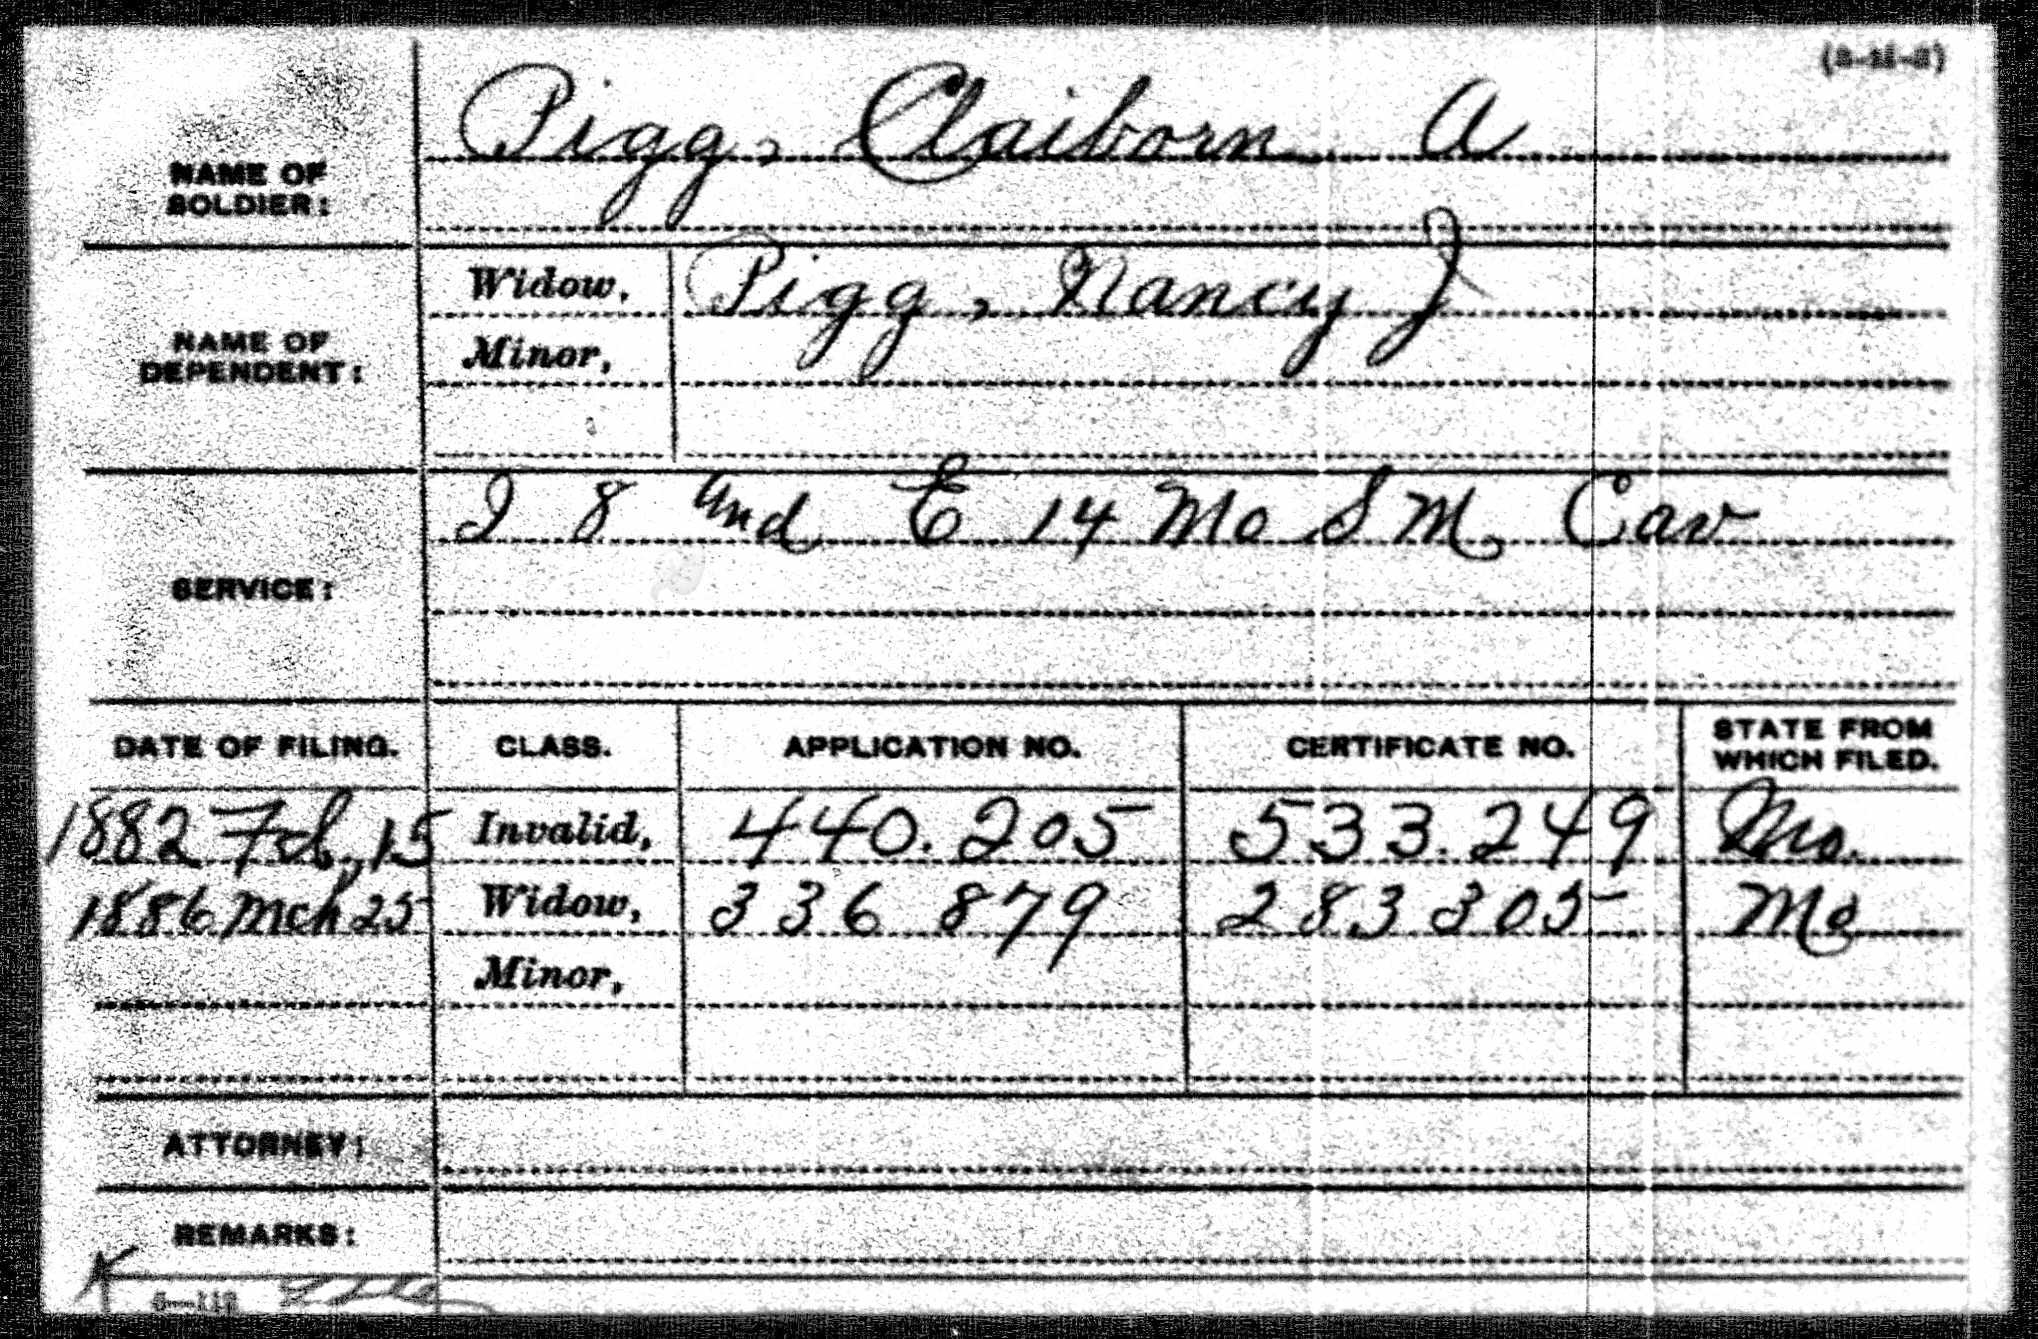 (3-M-3)
NAME OF SOLDIER: Pigg, Claiborn A
NAME OF DEPENDENT:
Widow, Pigg, Nancy J
Minor,
SERVICE: I 8 and E 14 Mo S M Cav
DATE OF FILING. CLASS. APPLICATION NO. CERTIFICATE NO. STATE FROM WHICH FILED.
1882 Feb, 15 Invalid, 440.205 533.249 Mo.
1886 Mch 25 Widow, 336 879 283 305 Mo
Minor,
ATTORNEY:
REMARKS:
K